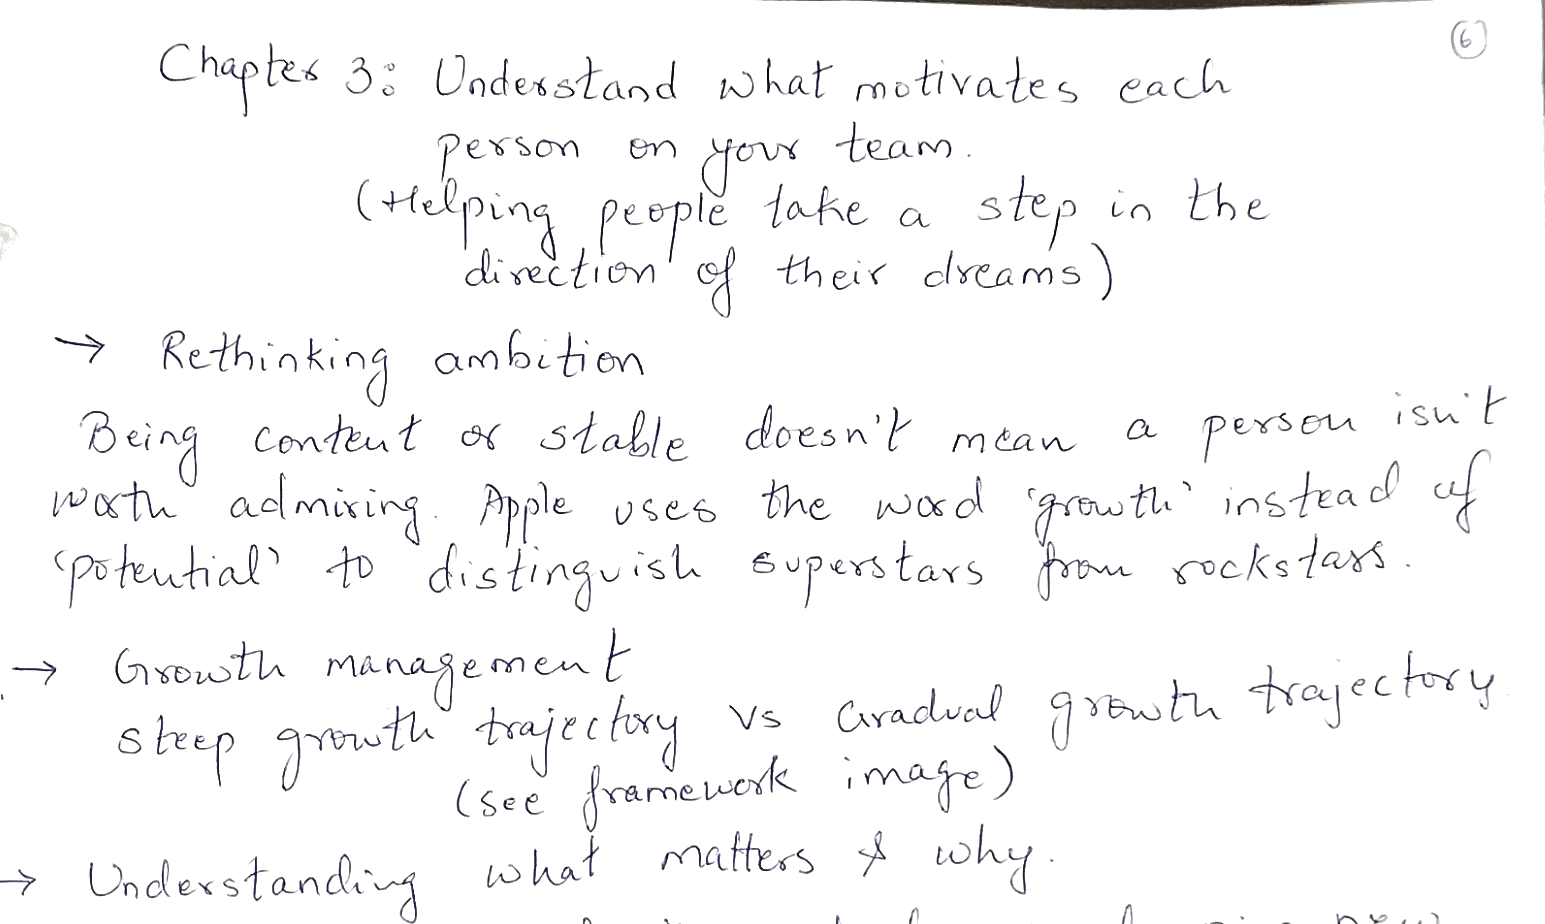 6
Chapter 3: Understand what motivates each
person on your team.
(Helping people take a step in the
direction of their dreams)
→ Rethinking ambition
Being content or stable doesn't mean a person isn't
worth admiring. Apple uses the word 'growth' instead of
'potential' to distinguish superstars from rockstars.
→ Growth management
steep growth trajectory vs Gradual growth trajectory
(see framework image)
→ Understanding what matters & why.